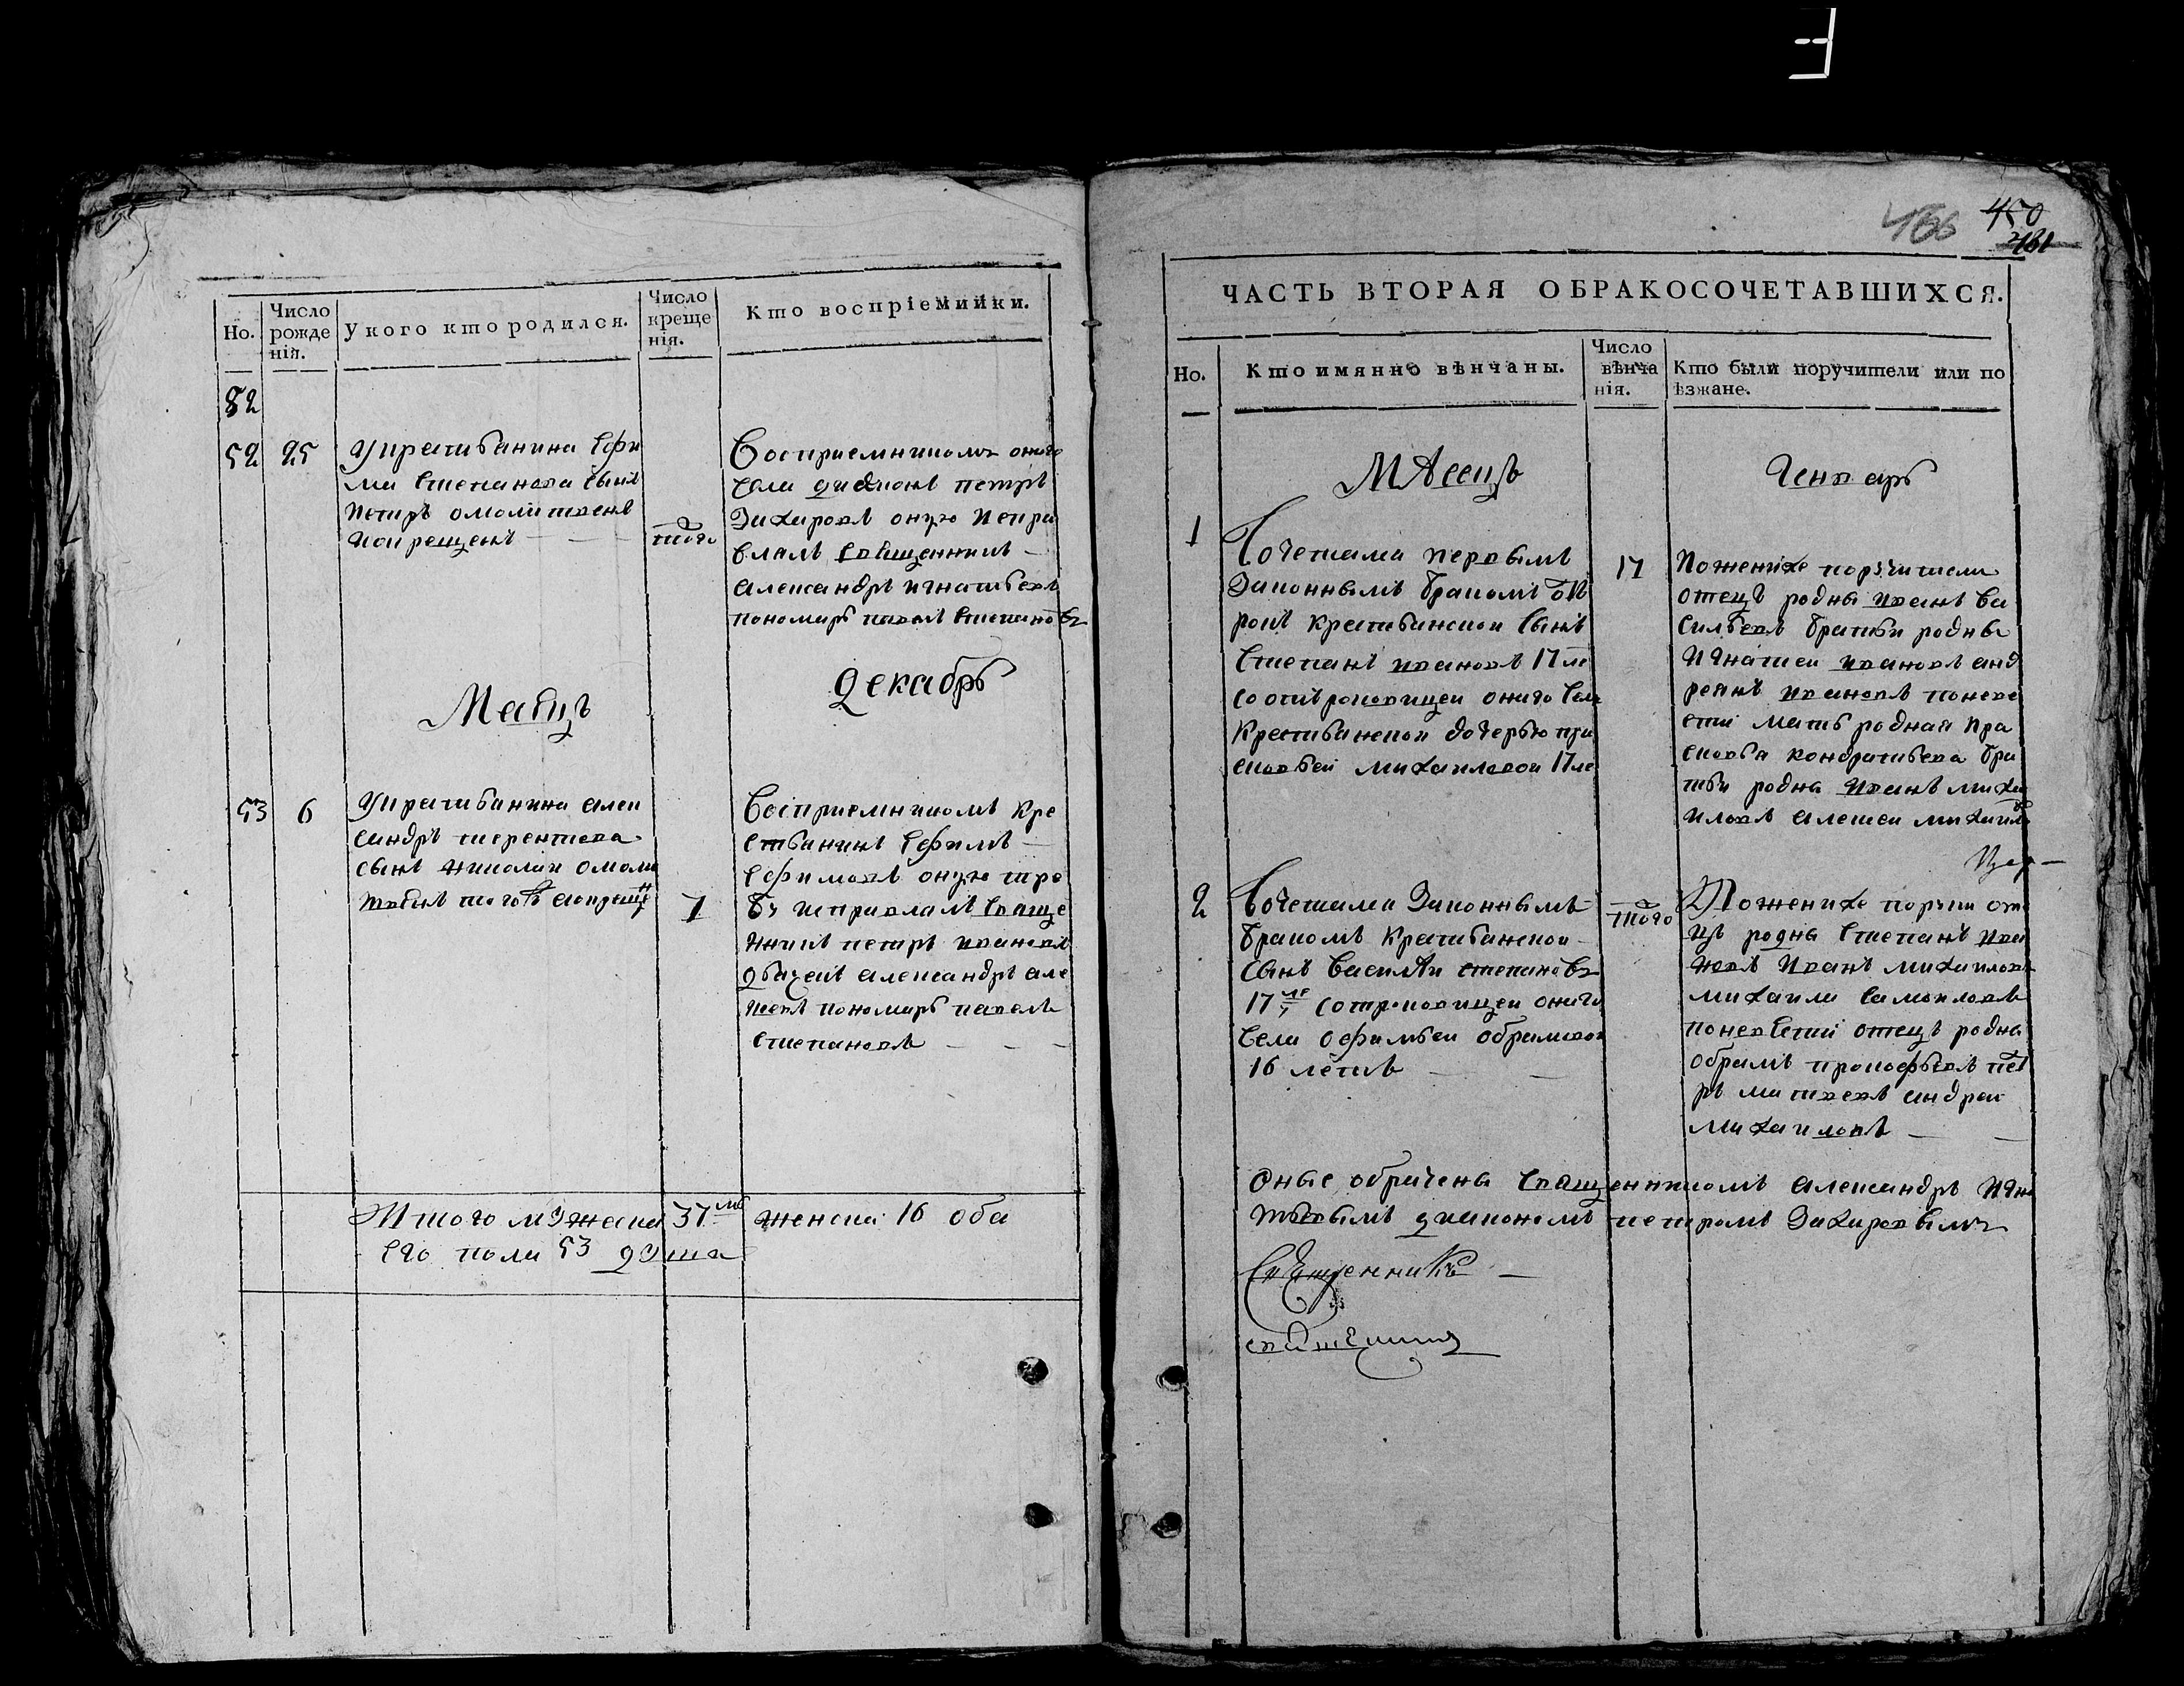 466 450
461
Но.
Число рожде нія.
У кого кто родился.
Число креще нія.
Кто воспріемники.
82
52 25
у крестьянина Ефи
ма Степанова сынъ
Петръ омолитвенъ
и окрещенъ
того
Восприемникомъ онаго
села диаконъ петръ
Захаровъ оную исправ
влялъ священникъ
александръ игнатьевъ
пономарь павелъ степановъ
Месяцъ
декабрь
53 6
у крестьянина алек
сандръ терентиева
сынъ николаи омоли
7
Восприемникомъ кре
стьянинъ Ефимъ
Ефимовъ оную тре
бу исправлялъ свяще
нникъ петръ ивановъ
дьячекъ александръ але
пономарь павелъ
степановъ
Итого мужеска 37 женска 16 оба
его пола 53 душа
ЧАСТЬ ВТОРАЯ ОБРАКОСОЧЕТАВШИХСЯ.
Но.
Кто имянно вѣнчаны.
Число вѣнча нія.
Кто были поручители или по ѣзжане.
МѢсецъ
Генварь
1
Сочетами первымъ
законнымъ бракомъ от
рокъ крестьянскои сынъ
степанъ ивановъ 17 ле
со отъроковицеи онаго села
крестьянскои дочерью пра
сковьеи михаиловои 17 ле
17
По женихе поручители
отецъ родны иванъ ва
сильевъ братьи родны
игнатеи ивановъ анд
реянъ ивановъ по неве
сти мать родная пра
сковья кондратьева бра
тьи родны иванъ михаи
иловъ алексеи михаил
2
Сочетами законнымъ
бракомъ крестьянскои
сынъ василѣи степановъ
17 ле с отроковицеи онаго
села офимьеи обрамовои
16 летъ
того
По женихе поручи оте
цъ родны степанъ ива
новъ иванъ михаиловъ
михаила самоиловъ
по невести отецъ родны
обрамъ прокофьевъ пет
ръ матвевъ андреи
михаиловъ
оные обрачены священникомъ александръ игна
тьевымъ диакономъ петромъ захаровымъ
священникъ